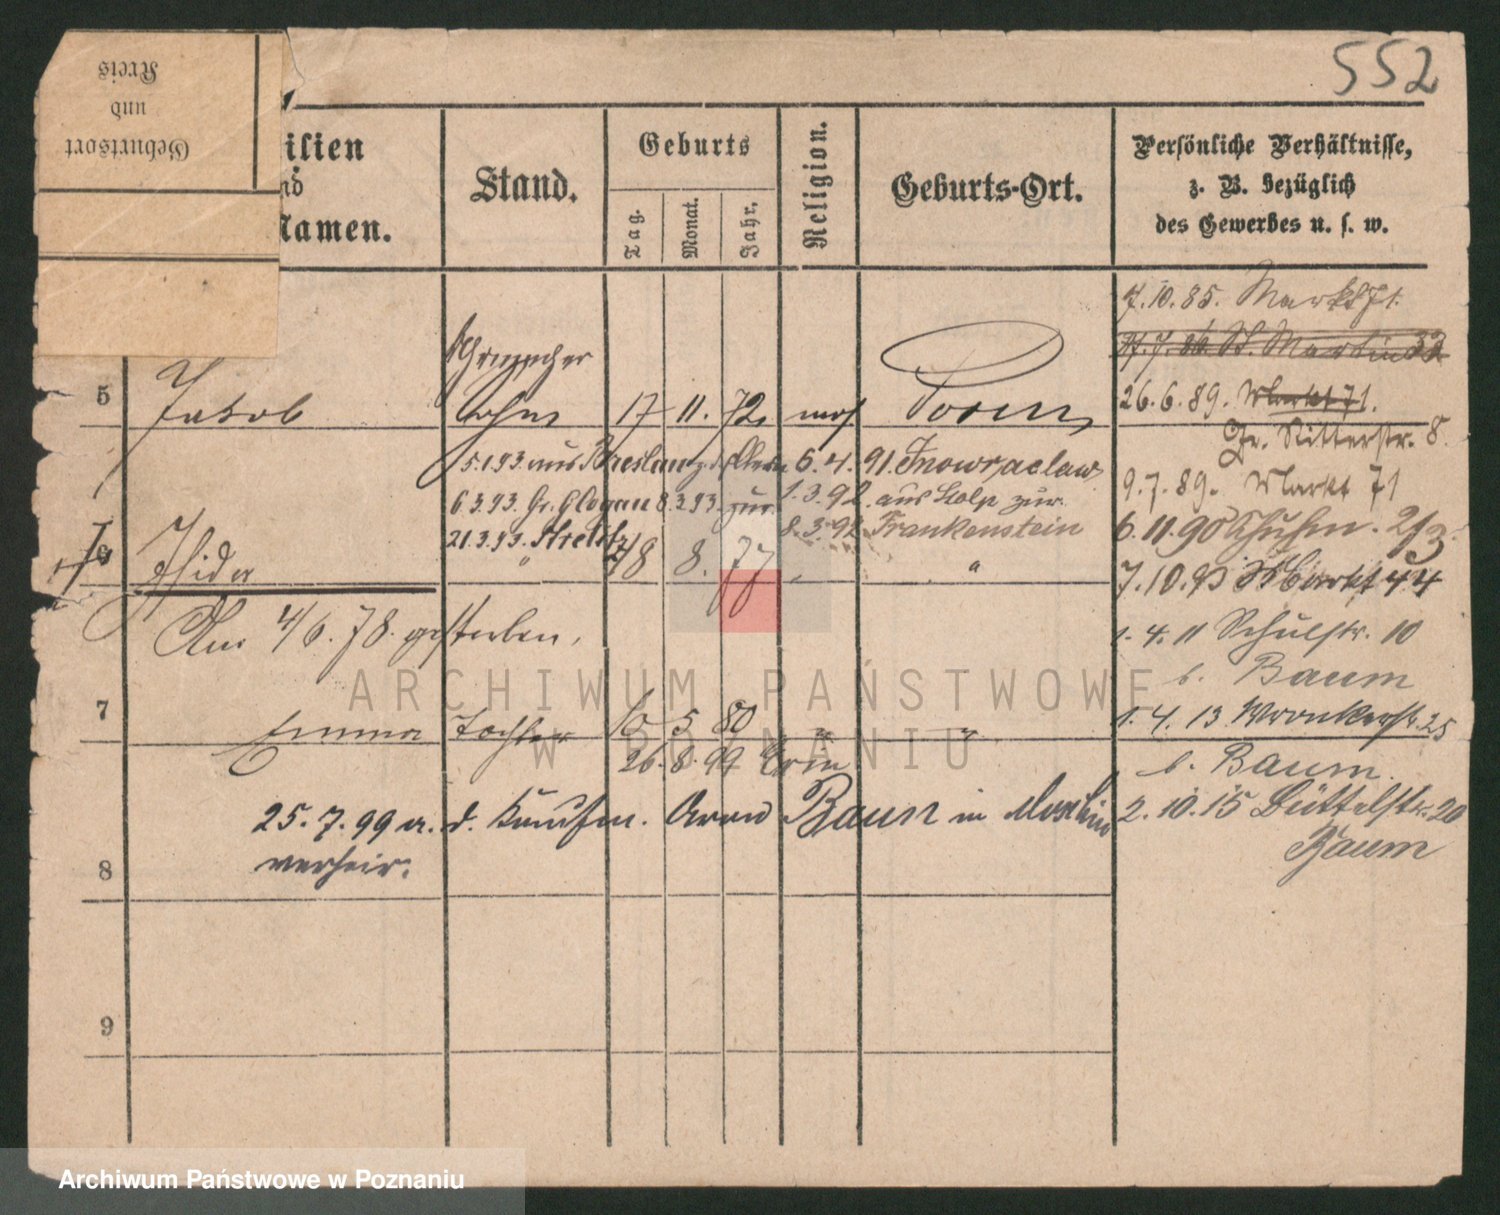 552
Kreis
und
Geburtsort
ilien
nd
Namen.
Stand.
Geburts
Tag.
Monat.
Jahr.
Religion.
Geburts-Ort.
Persönliche Verhältnisse,
z. B. bezüglich
des Gewerbes u. s. w.
7.10.85. Markt 71.
7. 86 St. Martin 33
5 Jakob 17 11. 72 mos Posen
26.6.89. Markt 71.
Gr. Ritterstr. 8.
5.1.93 aus Breslau z. d. Eltern 6.4.91. Inowraclaw
6.3.93. Gr. Glogau 8.3.93. zur. 1.3.92. aus Stolp zur.
9.7.89. Markt 71
21.3.93. Strelitz 8.3.92 Frankenstein
6.11.90 Schuhm. 2/3.
6 Isidor " 8. 77 " "
7.10.93 Markt 44
Am 4/6.78. gestorben.
1.4.11 Schulstr. 10
b. Baum
7 Emma Tochter 10 5 80 " "
1.4.13 Wronkerstr. 25
26.8.99
b. Baum.
25.7.99 a. d. Kaufm. Aron Baum in
2.10.15 Büttelstr. 20
verheir.
Baum
8
9
ARCHIWUM PAŃSTWOWE
W POZNANIU
Archiwum Państwowe w Poznaniu